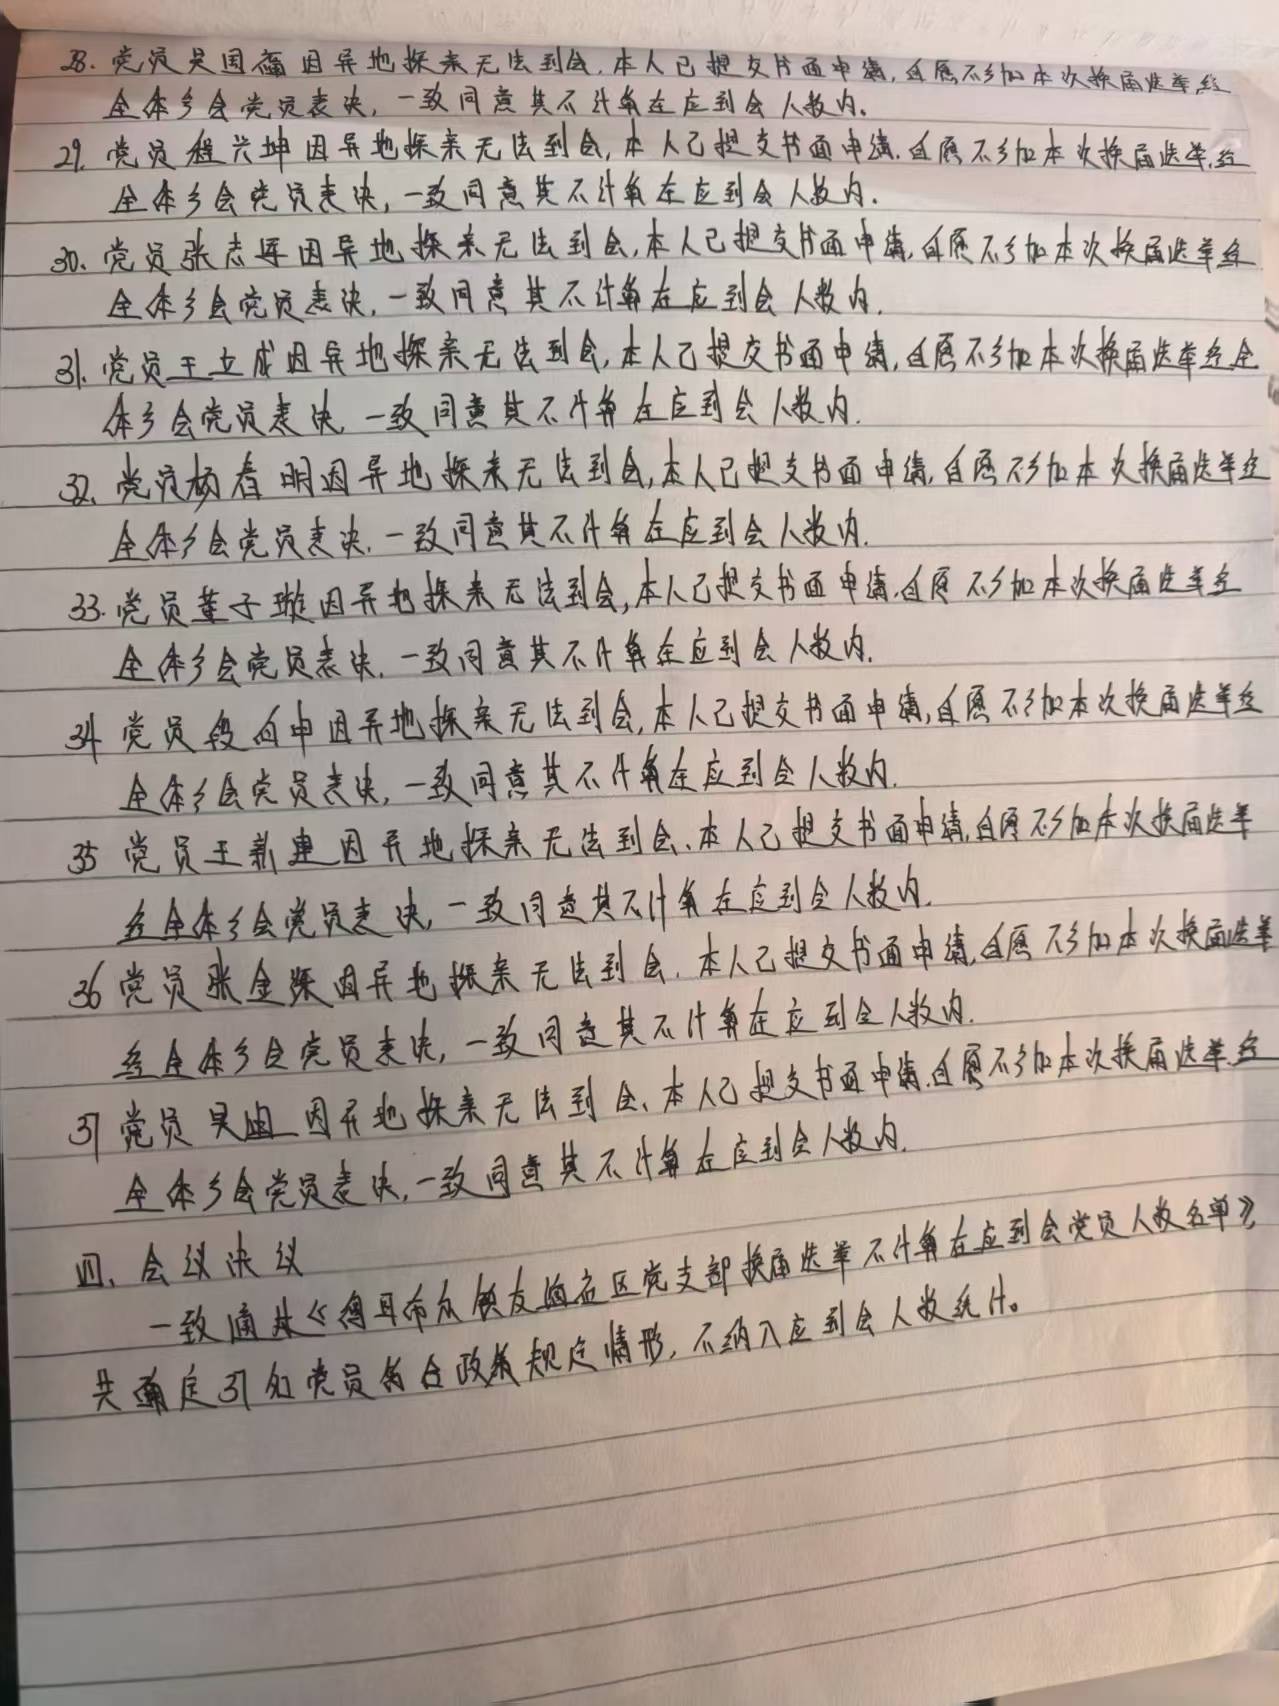 28. 党员吴国 因异地探亲无法到会,本人已提交书面申请,自愿不参加本次换届选举,经
全体参会党员表决,一致同意其不计算在应到会人数内。
29. 党员程兴坤因异地探亲无法到会,本人已提交书面申请,自愿不参加本次换届选举,经
全体参会党员表决,一致同意其不计算在应到会人数内.
30. 党员张志 因异地探亲无法到会,本人已提交书面申请,自愿不参加本次换届选举经
全体参会党员表决,一致同意其不计算在应到会人数内.
31. 党员王立成因异地探亲无法到会,本人已提交书面申请,自愿不参加本次换届选举经全
体参会党员表决,一致同意其不计算在应到会人数内.
32. 党员杨春明因异地探亲无法到会,本人已提交书面申请,自愿不参加本次换届选举经
全体参会党员表决,一致同意其不计算在应到会人数内.
33. 党员董子璇因异地探亲无法到会,本人已提交书面申请,自愿不参加本次换届选举经
全体参会党员表决,一致同意其不计算在应到会人数内.
34 党员段向申因异地探亲无法到会,本人已提交书面申请,自愿不参加本次换届选举经
全体参会党员表决,一致同意其不计算在应到会人数内.
35 党员王新建因异地探亲无法到会、本人已提交书面申请,自愿不参加本次换届选举
经全体参会党员表决,一致同意其不计算在应到会人数内.
36 党员张金 因异地探亲无法到会,本人已提交书面申请,自愿不参加本次换届选举
经全体参会党员表决,一致同意其不计算在应到会人数内.
37 党员 因异地探亲无法到会、本人已提交书面申请,自愿不参加本次换届选举.经
全体参会党员表决,一致同意其不计算在应到会人数内.
四、会议决议
一致通过《 区党支部换届选举不计算在应到会党员人数名单》,
共确定37位党员符合政策规定情形,不纳入应到会人数统计。